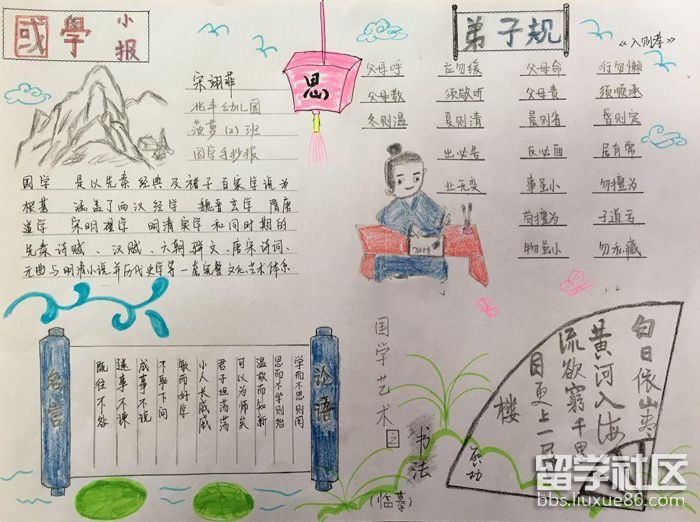 國學 小报
宋翊菲
北丰幼儿园
菠萝(2)班
国学手抄报
国学 是以先秦经典及诸子百家学说为
根基 涵盖了两汉经学 魏晋玄学 隋唐
道学 宋明理学 明清实学和同时期的
先秦诗赋、汉赋、六朝骈文、唐宋诗词、
元曲与明清小说并历代史学等一套完整文化、艺术体系
思
弟子规
《入则孝》
父母呼 应勿缓 父母命 行勿懒
父母教 须敬听 父母责 须顺承
冬则温 夏则凊 晨则省 昏则定
出必告 反必面 居有常
业无变 事虽小 勿擅为
苟擅为 子道亏
物虽小 勿私藏
论语
学而不思则罔
思而不学则殆
温故而知新
可以为师矣
君子坦荡荡
小人长戚戚
敏而好学
不耻下问
成事不说
遂事不谏
既往不咎
名言
国学艺术之
书法
(临摹)
白日依山尽
黄河入海
流欲穷千里
目更上一层
楼
启功
留学社区
bbs.liuxue86.com